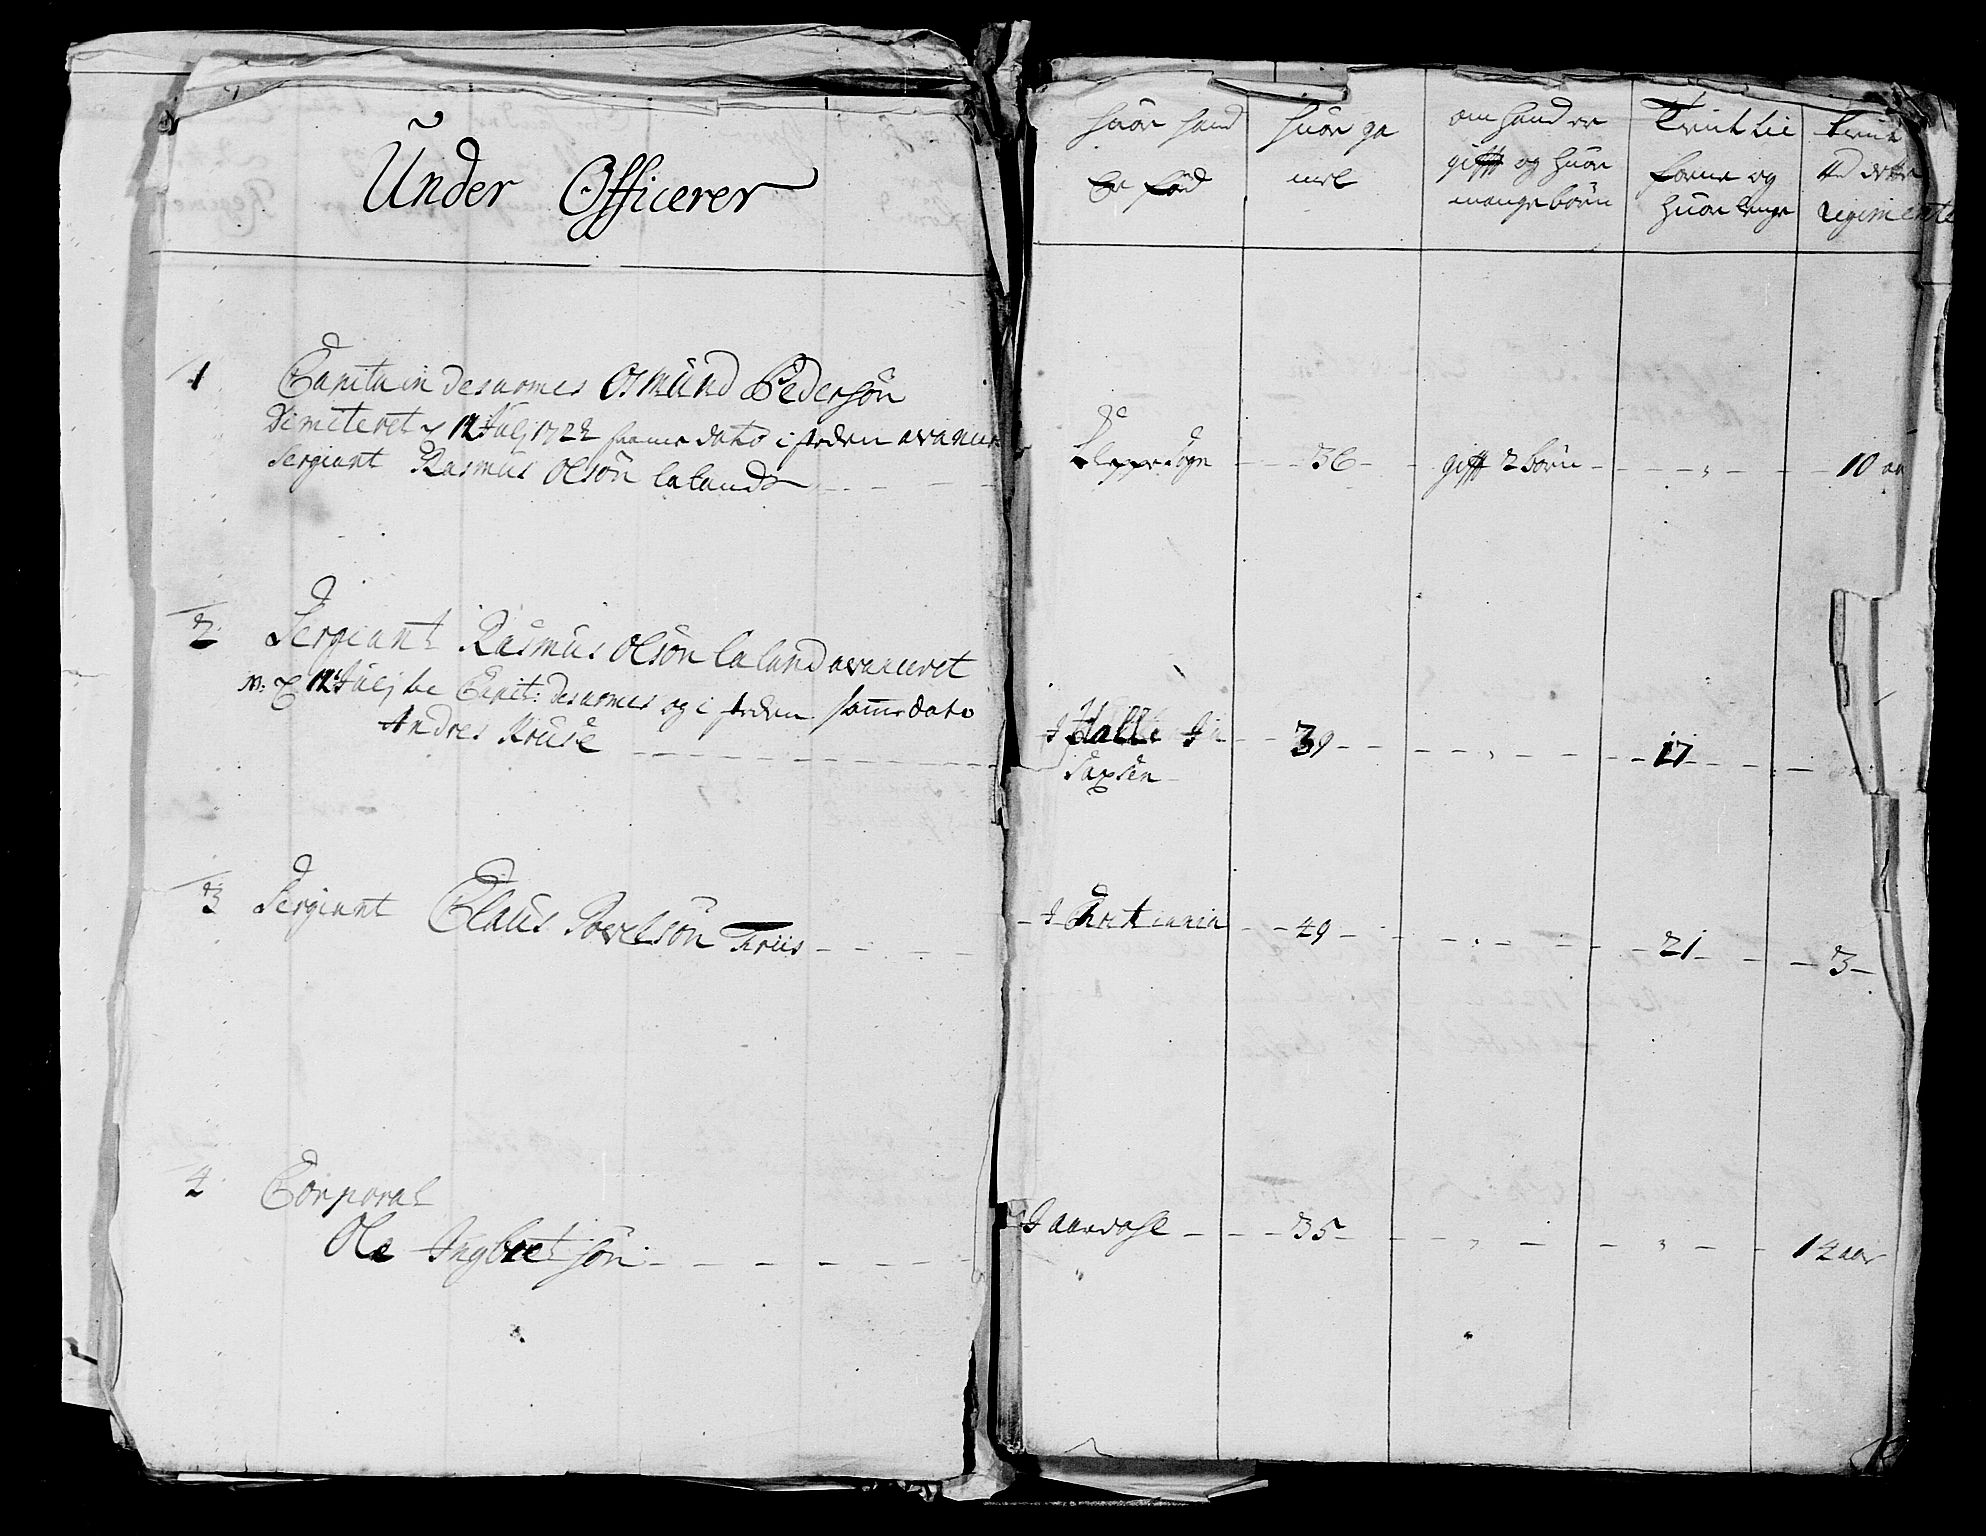 Under Officerer
huor hand
er född
huor ga
mel
om hand er
gifft og huor
mange börn
Tient til
forne og
huor lenge
tient
ved dette
Regimente
1 Capitain desarmes Osmund Pedersön
Dimiteret d 12 Julj 1722 samme dato i steden avancer
Sergiant Rasmus Olsön laland
Kleppe Sogn 36 gifft 2 börn 10 aar
2 Sergiant Rasmus Olsön laland avanceret
12 Julj til Capit: desarmes og i steden samme dato
Andres Kruse
I Halle I
Saxsen
39 17
3 Sergiant Claus Povelsön Friis
I Christiania 49 21 3
4 Corporal
Ole Ingbretsön
I aardahl 35 14 aar